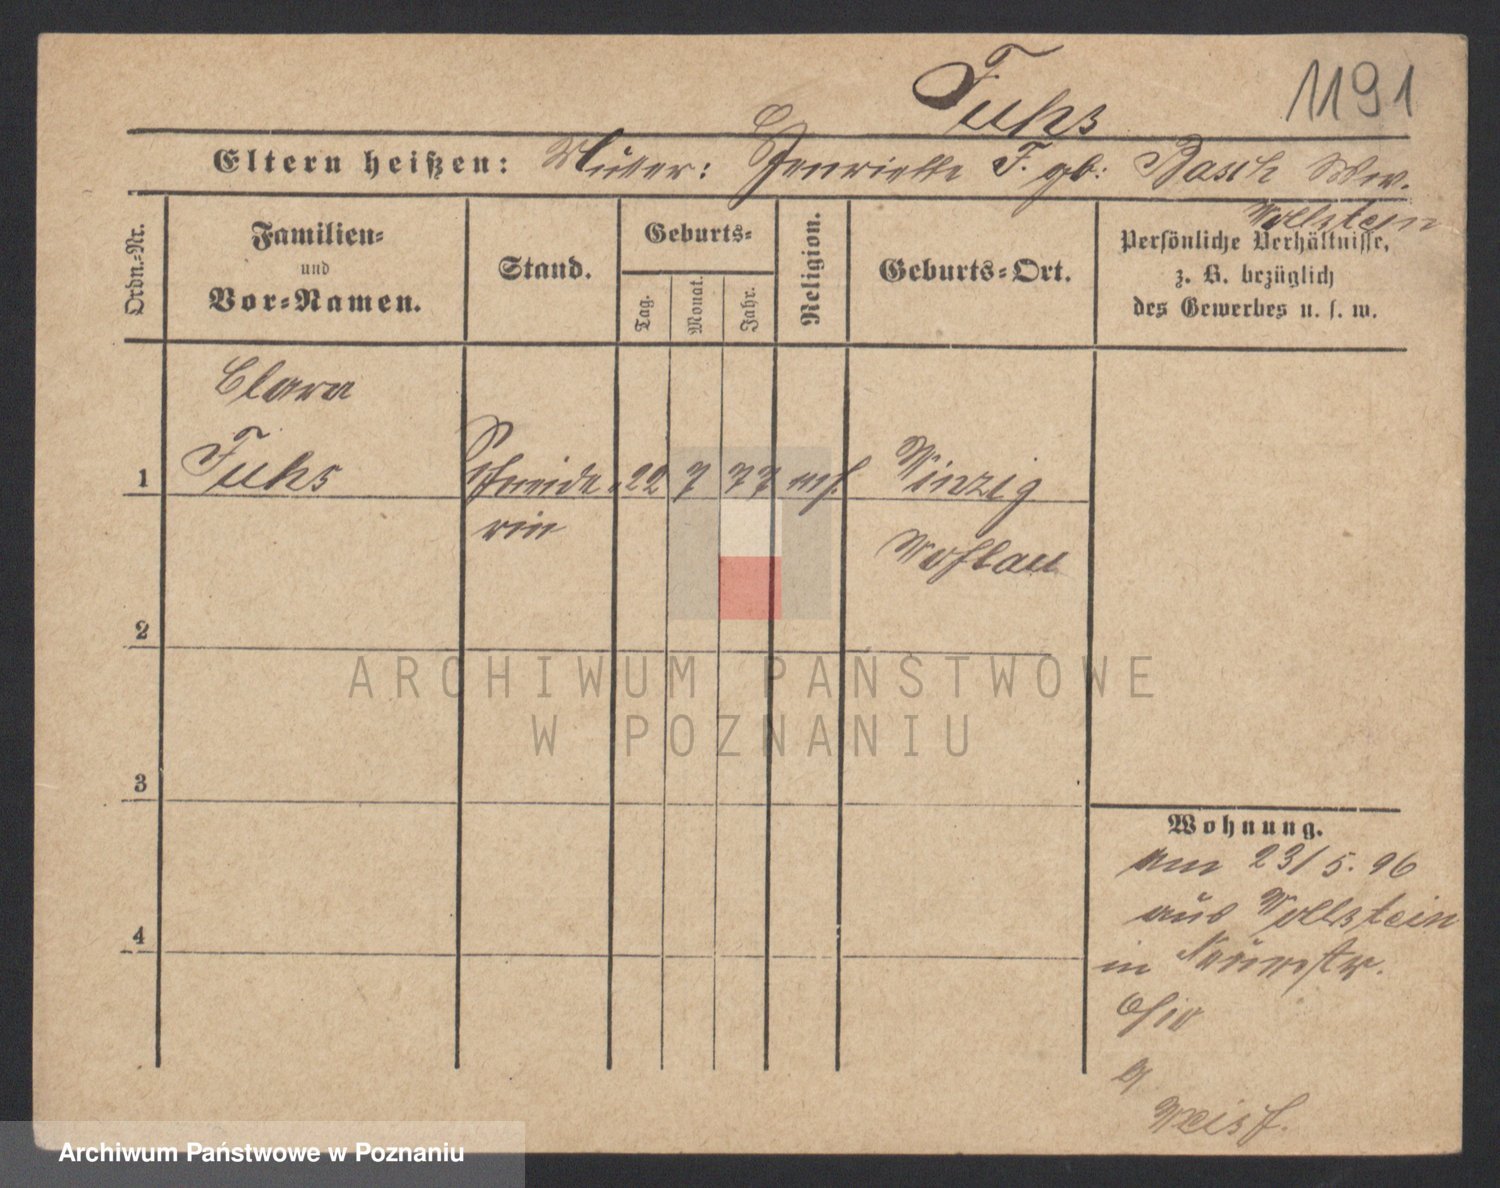 Fuhs
1191
Eltern heißen: Mutter: Henriette F. gb: Basch Ww.
Wollstein
Ordn.-Nr.
Familien-
und
Vor-Namen.
Stand.
Geburts-
Tag.
Monat.
Jahr.
Religion.
Geburts-Ort.
Persönliche Verhältnisse,
z. B. bezüglich
des Gewerbes u. s. w.
Clara
1 Fuhs Schneide- 22 7 77 Winzig
rin Wohlau
2
3
4
Wohnung.
am 23/5. 96
aus Wollstein
in
ARCHIWUM PAŃSTWOWE
W POZNANIU
Archiwum Państwowe w Poznaniu